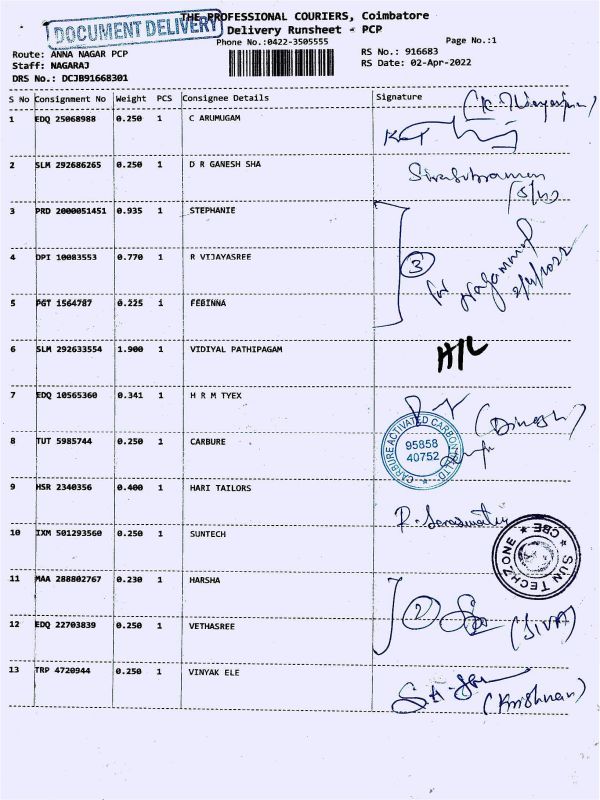 DOCUMENT DELIVERY
THE PROFESSIONAL COURIERS, Coimbatore
Delivery Runsheet - PCP
Phone No.:0422-3505555
Page No.:1
Route: ANNA NAGAR PCP
RS No.: 916683
Staff: NAGARAJ
RS Date: 02-Apr-2022
DRS No.: DCJB91668301
S No Consignment No Weight PCS Consignee Details Signature
1 EDQ 25068988 0.250 1 C ARUMUGAM
2 SLM 292686265 0.250 1 D R GANESH SHA
3 PRD 2000051451 0.935 1 STEPHANIE
4 DPI 10083553 0.770 1 R VIJAYASREE
3
for
2/4/2022
5 PGT 1564787 0.225 1 FEBINNA
6 SLM 292633554 1.900 1 VIDIYAL PATHIPAGAM
H/L
7 EDQ 10565360 0.341 1 H R M TYEX
(Dinesh)
8 TUT 5985744 0.250 1 CARBURE
CARBURE ACTIVATED CARBON LTD
95858
40752
9 HSR 2340356 0.400 1 HARI TAILORS
R. Saraswathy
10 IXM 501293560 0.250 1 SUNTECH
SUN TECHZONE CBE
11 MAA 288802767 0.230 1 HARSHA
2
12 EDQ 22703839 0.250 1 VETHASREE
(SIVA)
13 TRP 4720944 0.250 1 VINYAK ELE
(Krishnan)